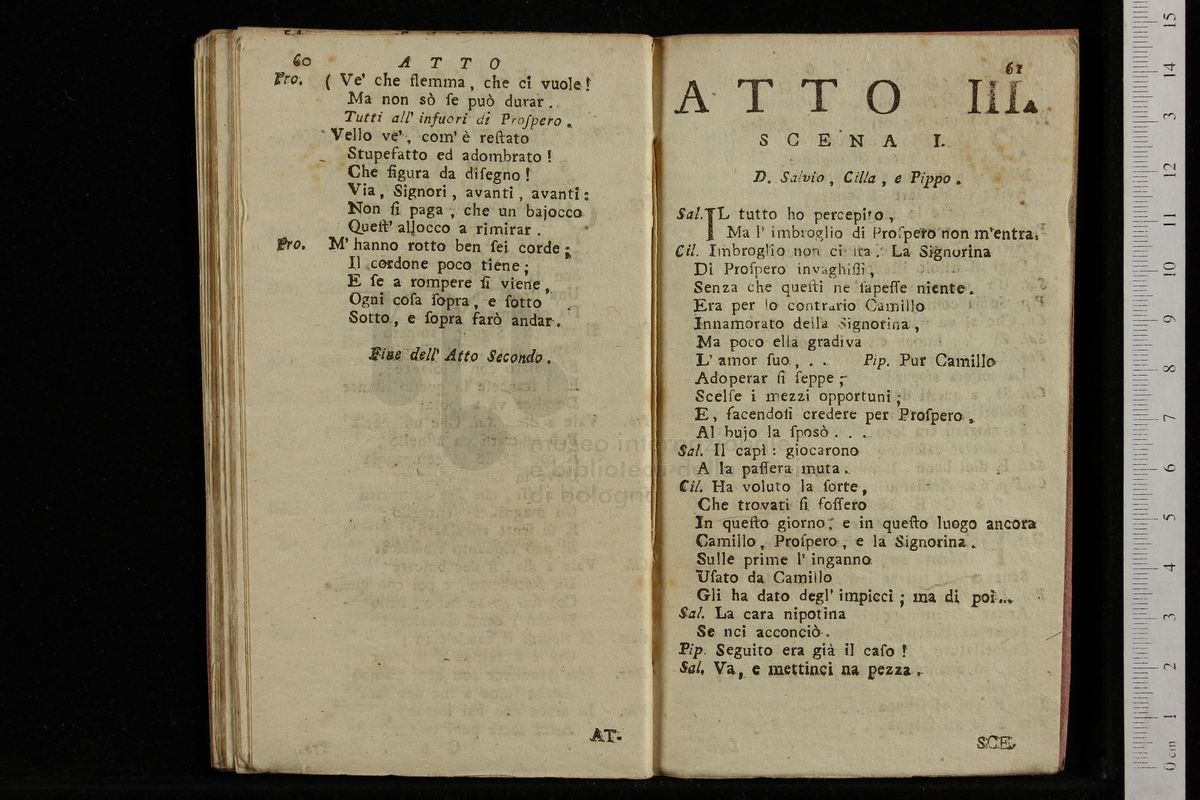 60 ATTO
Pro. ( Ve' che flemma, che ci vuole!
Ma non sò ſe può durar.
Tutti all' infuori di Proſpero.
Vello ve', com' è reſtato
Stupefatto ed adombrato!
Che figura da diſegno!
Via, Signori, avanti, avanti:
Non ſi paga, che un bajocco
Queſt' allocco a rimirar.
Pro. M' hanno rotto ben ſei corde;
Il cordone poco tiene;
E ſe a rompere ſi viene,
Ogni coſa ſopra, e ſotto
Sotto, e ſopra farò andar.
Fine dell' Atto Secondo.
AT-
61
ATTO III.
SCENA I.
D. Salvio, Cilla, e Pippo.
Sal. IL tutto ho percepito,
Ma l' imbroglio di Proſpero non m'entra.
Cil. Imbroglio non ci ſta. La Signorina
Di Proſpero invaghiſſi,
Senza che queſti ne ſapeſſe niente.
Era per lo contrario Camillo
Innamorato della Signorina,
Ma poco ella gradiva
L' amor ſuo, . . Pip. Pur Camillo
Adoperar ſi ſeppe;
Scelſe i mezzi opportuni;
E, facendoſi credere per Proſpero,
Al bujo la ſposò . . .
Sal. Il capì: giocarono
A la paſſera muta.
Cil. Ha voluto la ſorte,
Che trovati ſi foſſero
In queſto giorno, e in queſto luogo ancora
Camillo, Proſpero, e la Signorina.
Sulle prime l' inganno
Uſato da Camillo
Gli ha dato degl' impicci; ma di poi...
Sal. La cara nipotina
Se nci acconciò.
Pip. Seguito era già il caſo!
Sal. Va, e mettinci na pezza.
SCE-
museo internazionale
e biblioteca della
di bologna
0 cm 1 2 3 4 5 6 7 8 9 10 11 12 13 14 15